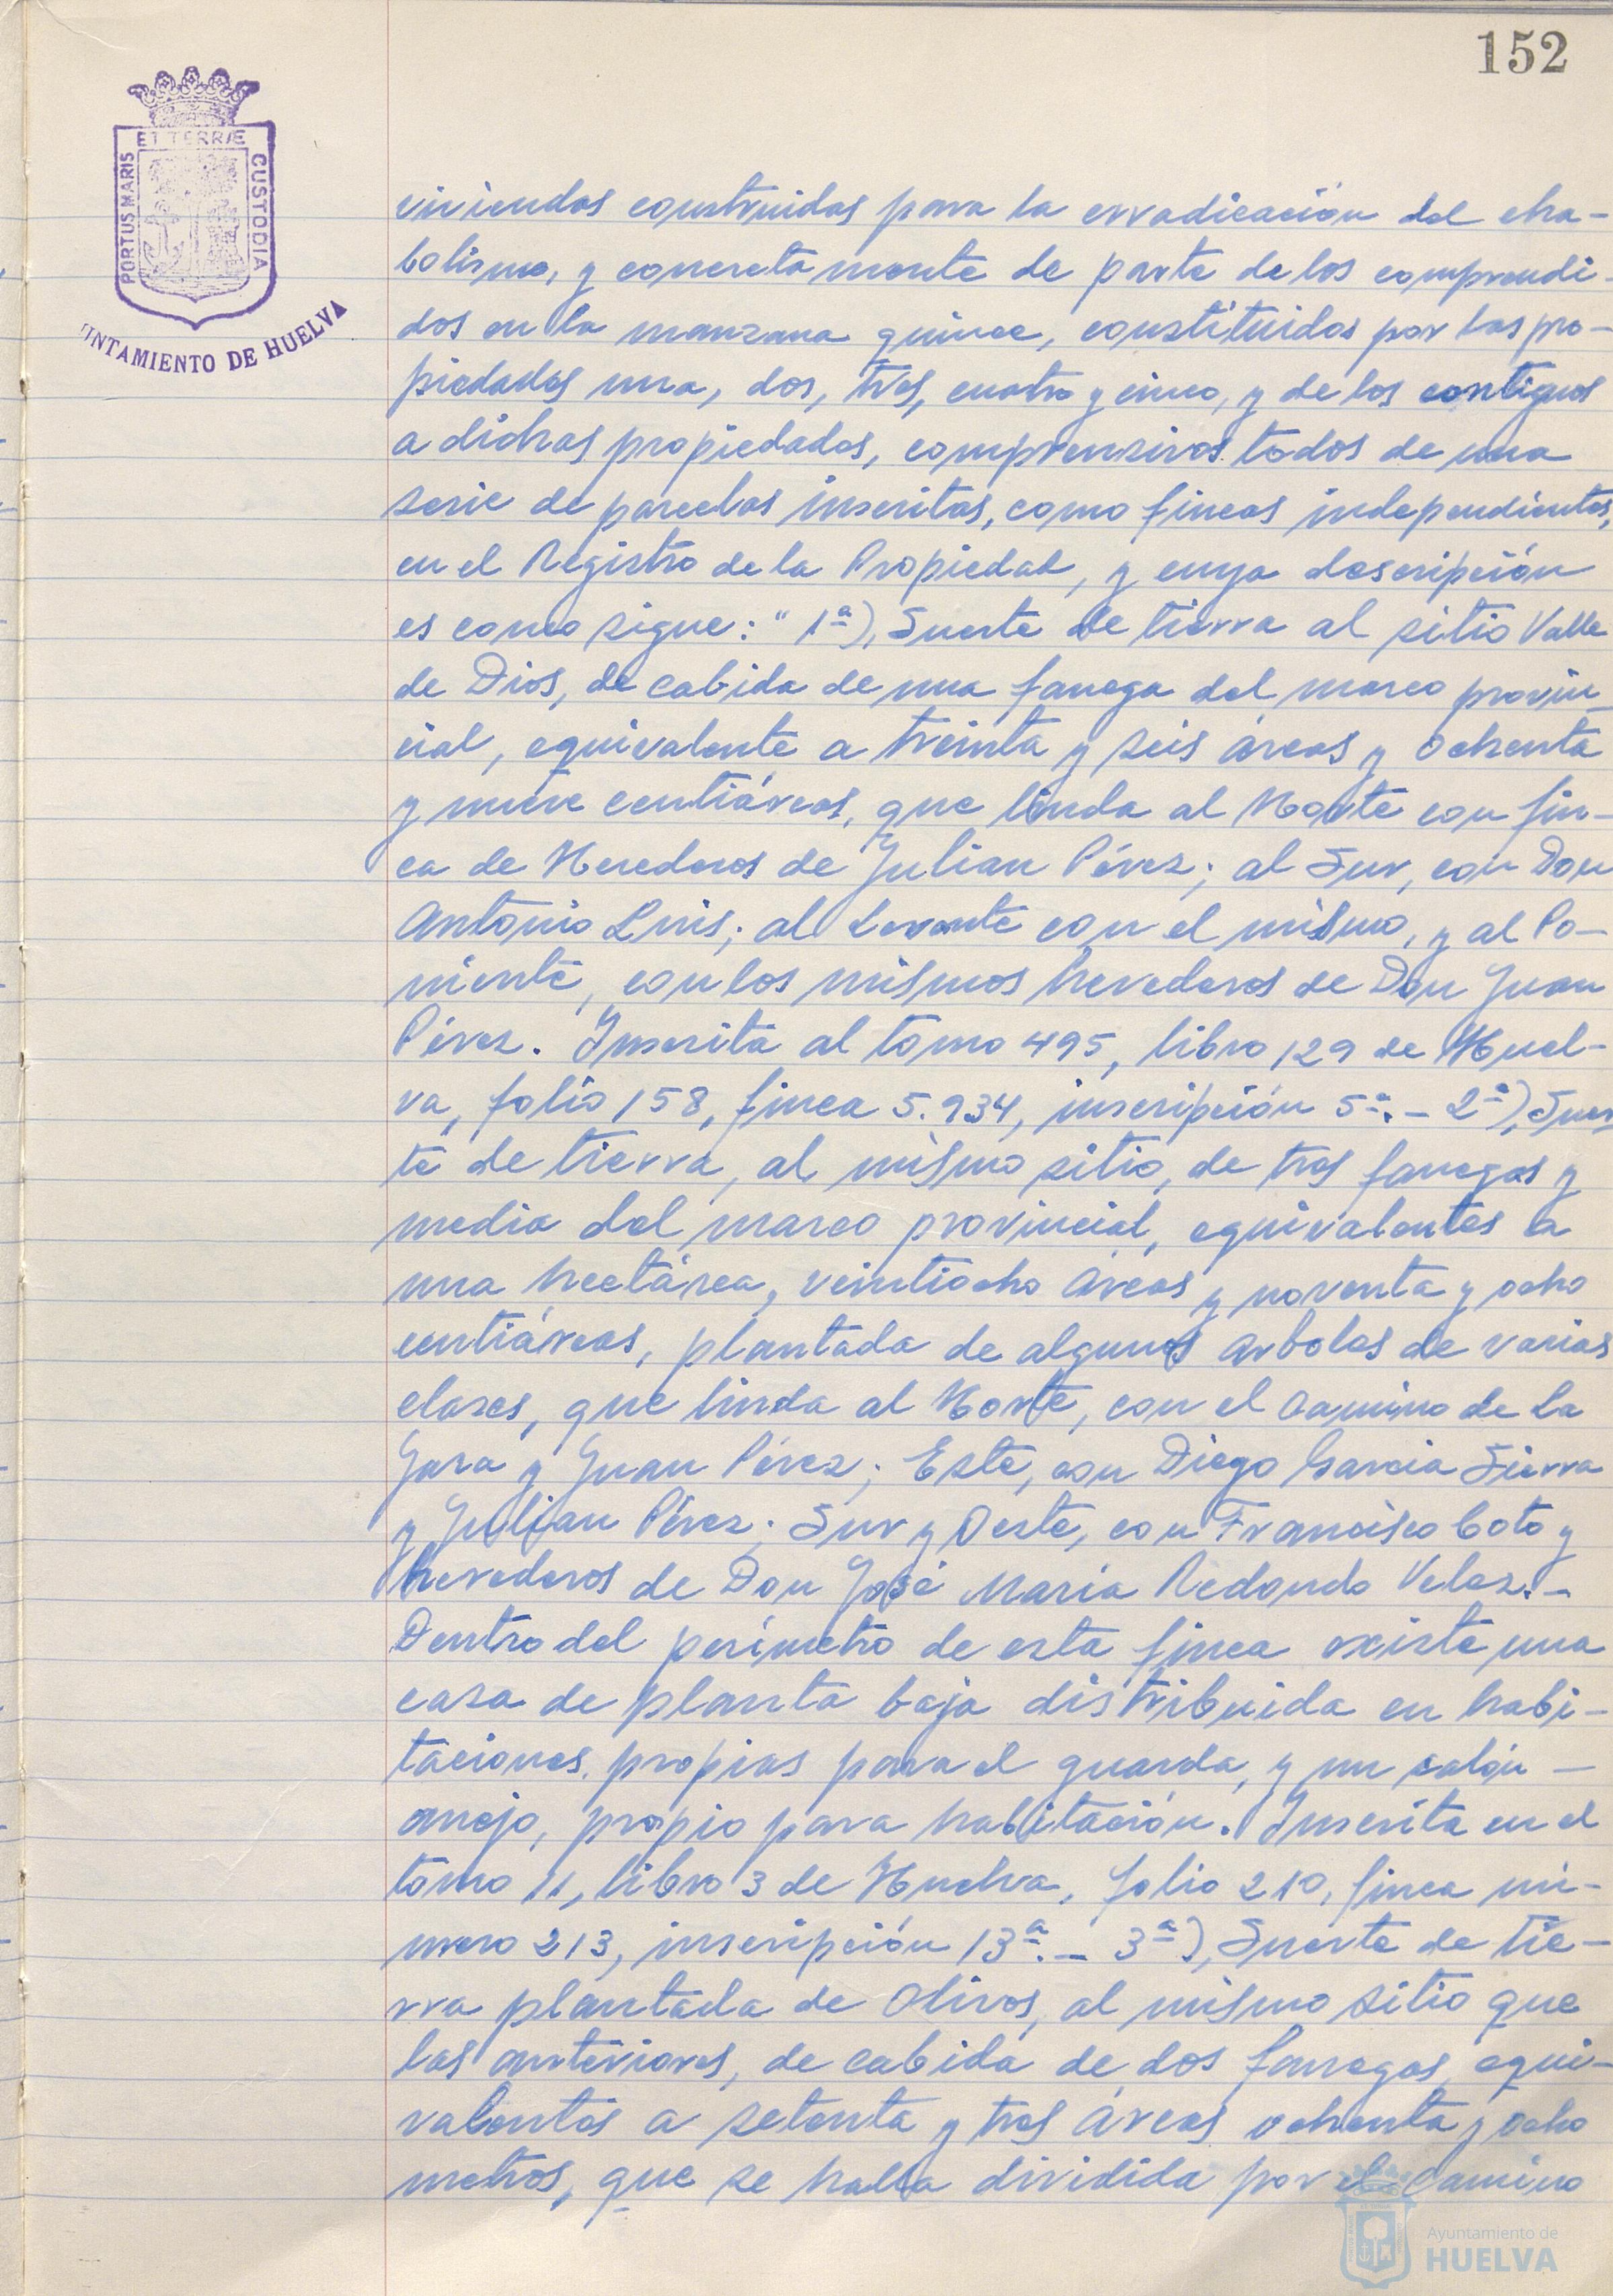 152
ET TERRÆ
PORTUS MARIS
CUSTODIA
UNTAMIENTO DE HUELVA
viviendas construidas para la erradicación del cha-
bolismo, y concretamente de parte de los comprendi-
dos en la manzana quince, constituidos por las pro-
piedades una, dos, tres, cuatro y cinco, y de los contiguos
a dichas propiedades, comprensivos todos de una
serie de parcelas inscritas, como fincas independientes,
en el Registro de la Propiedad, y cuya descripción
es como sigue: " 1ª), Suerte de tierra al sitio Valle
de Dios, de cabida de una fanega del marco provin-
cial, equivalente a treinta y seis áreas y ochenta
y nueve centiáreas, que linda al Norte con fin-
ca de Herederos de Julian Pérez; al Sur, con Don
Antonio Luis; al Levante con el mismo, y al Po-
niente, con los mismos herederos de Don Juan
Pérez. Inscrita al tomo 495, libro 129 de Huel-
va, folio 158, finca 5.934, inscripción 5ª.- 2ª), Suer-
te de tierra, al mismo sitio, de tres fanegas y
media del marco provincial, equivalentes a
una hectárea, veintiocho áreas y noventa y ocho
centiáreas, plantada de algunos arboles de varias
clases, que linda al Norte, con el camino de La
Jara y Juan Pérez; Este, con Diego Garcia Sierra
y Julian Pérez; Sur y Oeste, con Francisco Coto y
herederos de Don José María Redondo Velez.-
Dentro del perímetro de esta finca existe una
casa de planta baja distribuida en habi-
taciones propias para el guarda, y un salón -
anejo, propio para habitación. Inscrita en el
tomo 11, libro 3 de Huelva, folio 210, finca nú-
mero 213, inscripción 13ª.- 3ª), Suerte de tie-
rra plantada de Olivos, al mismo sitio que
las anteriores, de cabida de dos fanegas, equi-
valentes a setenta y tres áreas ochenta y ocho
metros, que se halla dividida por el camino
Ayuntamiento de
HUELVA